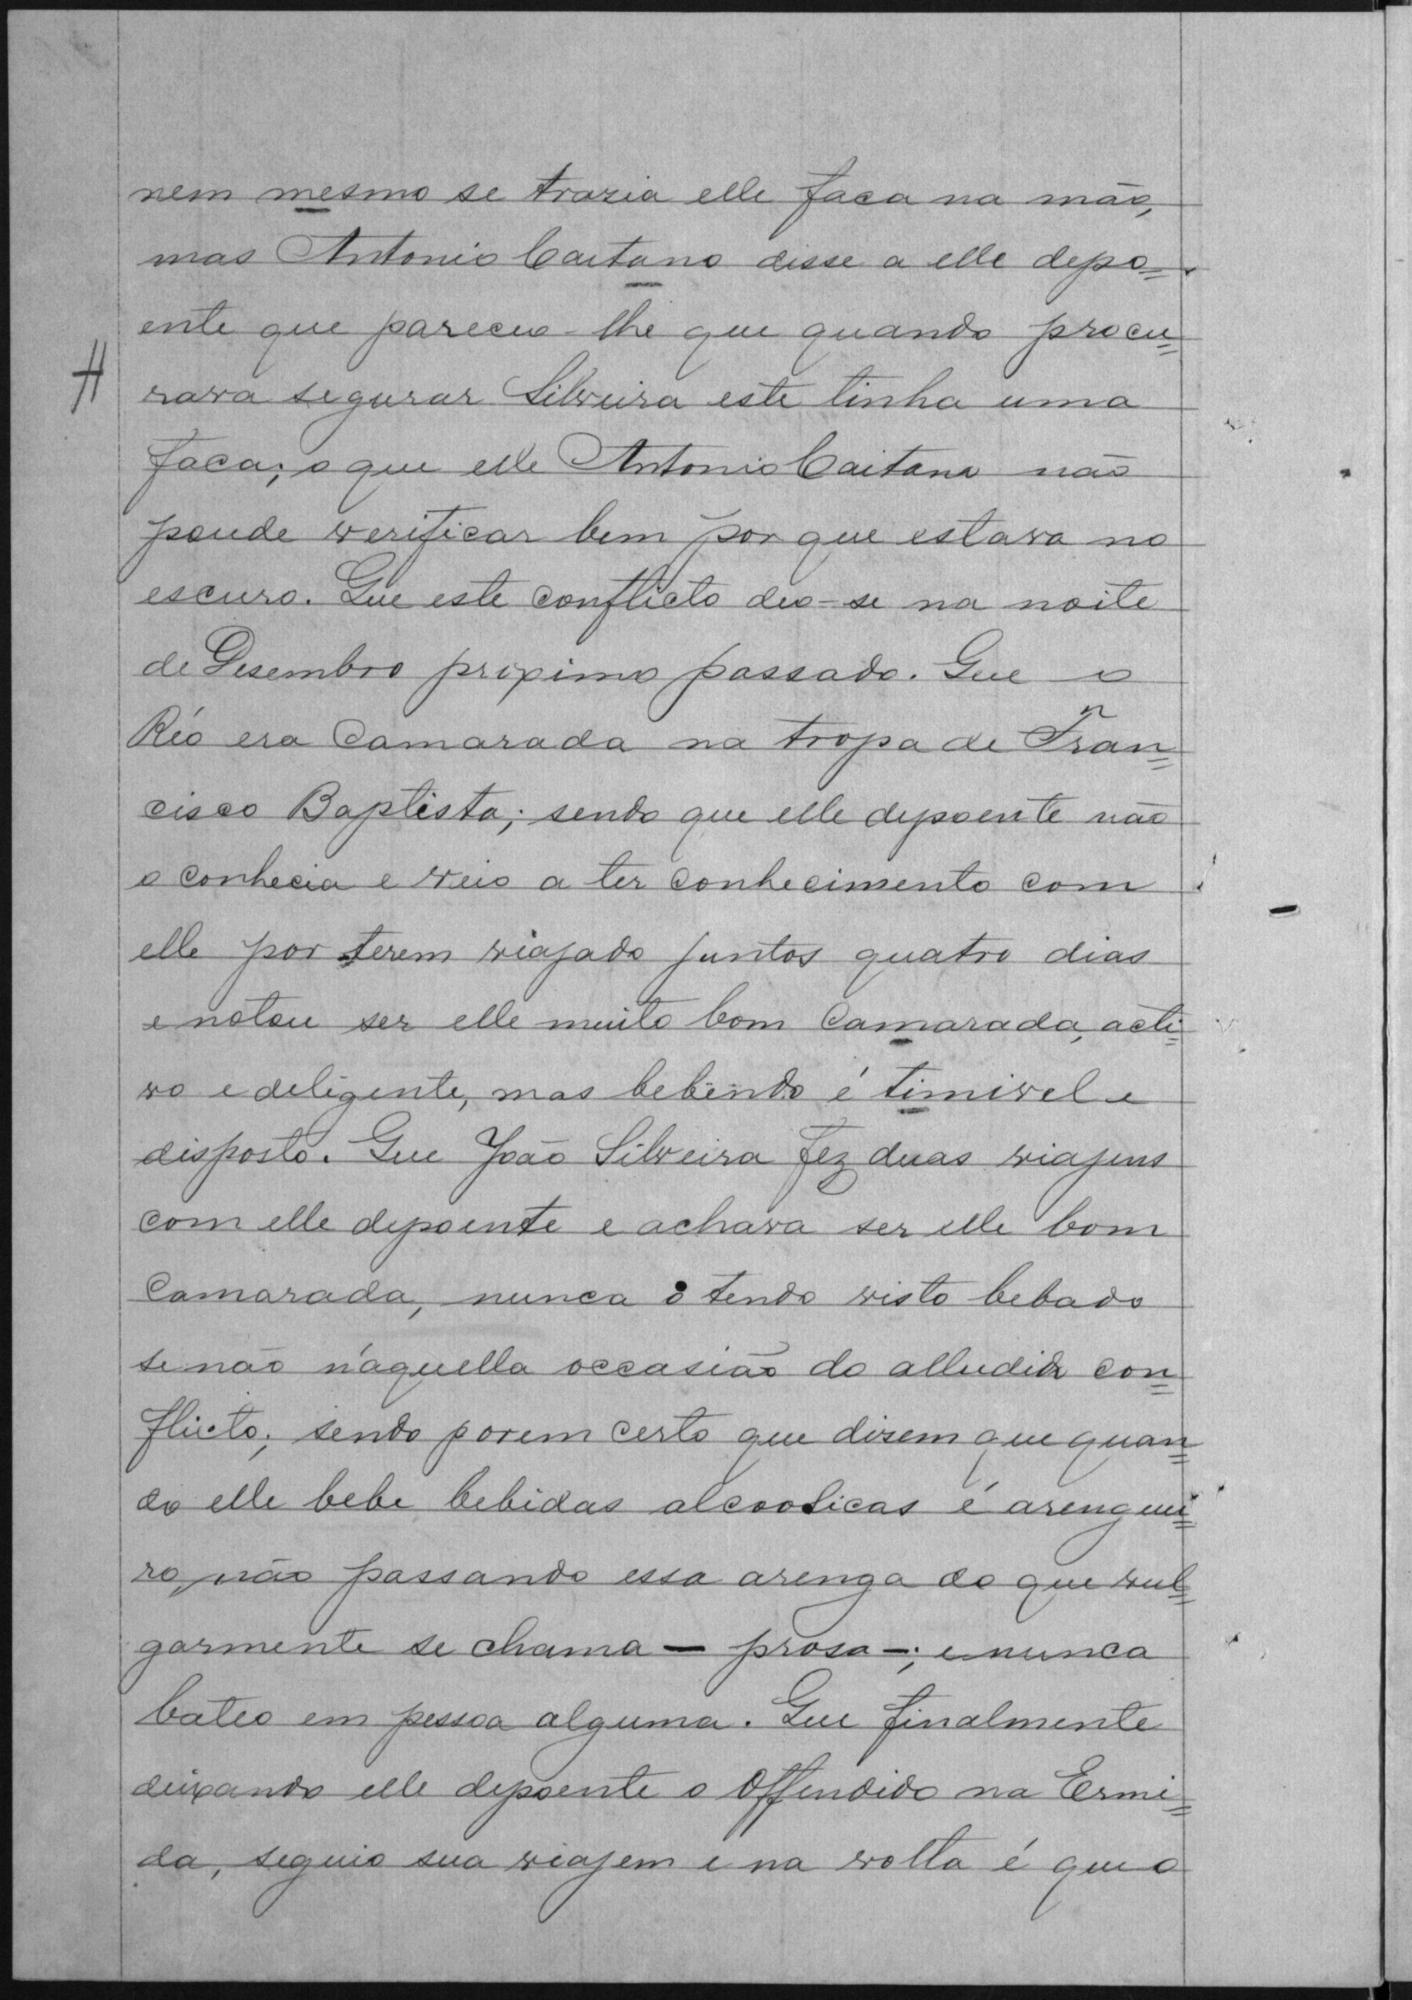 nem mesmo se trazia elle faca na mão,
mas Antonio Caetano disse a elle depo=
ente que pareceo-lhe que quando procu=
rava segurar Silveira este tinha uma
faca; o que elle Antonio Caitano não
poude verificar bem por que estava no
escuro. Que este conflicto deo-se na noite
de Desembro proximo passado. Que o
Réo era Camarada na tropa de Fran=
cisco Baptista; sendo que elle depoente não
o conhecia e veio a ter conhecimento com
elle por terem viajado juntos quatro dias
e notou ser elle muito bom Camarada, acti=
vo e deligente, mas bebendo é timivel e
disposto. Que João Silveira fez duas viajens
com elle depoente e achava ser elle bom
Camarada, nunca o tendo visto bebado
se não n'aquella occasião do alludido con=
flicto; sendo porem certo que disem que quan=
do elle bebe bebidas alcoolicas é arengui=
ro, não passando essa arenga do que vul=
garmente se chama — prosa —; e nunca
bateo em pessoa alguma. Que finalmente
deixando elle depoente o Offendido na Ermi=
da, seguio sua viajem e na volta é que o